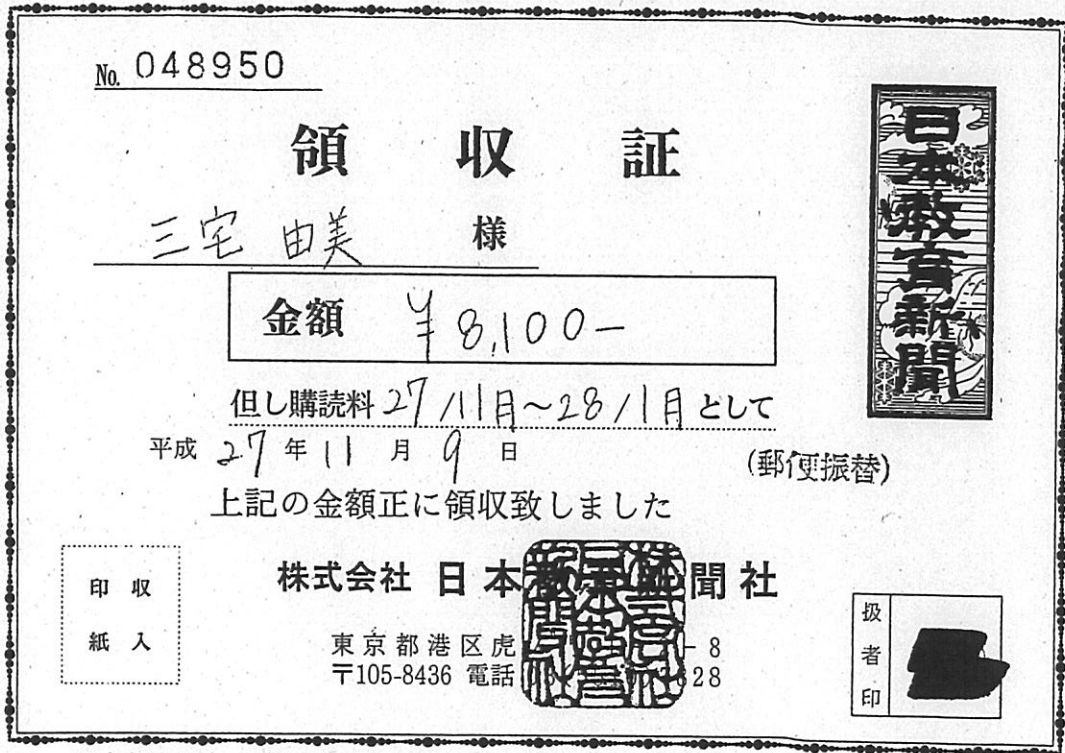 No. 048950
領収証
三宅 由美 様
金額 ¥8,100-
但し購読料 27/11月~28/1月 として
平成 27年 11月 9日
(郵便振替)
上記の金額正に領収致しました
日本教育新聞
収入印紙
株式会社 日本 聞社
東京都港区虎 -8
〒105-8436 電話 28
扱者印